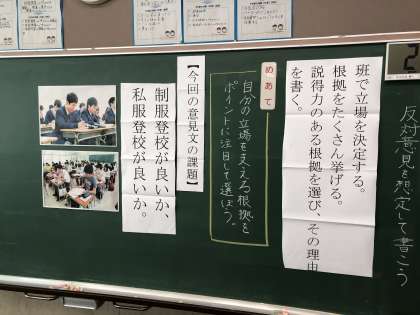 反対意見を想定して書こう
班で立場を決定する。
根拠をたくさん挙げる。
説得力のある根拠を選び、その理由
を書く。
めあて
自分の立場を支える根拠を
ポイントに注目して選ぼう。
【今回の意見文の課題】
制服登校が良いか、
私服登校が良いか。